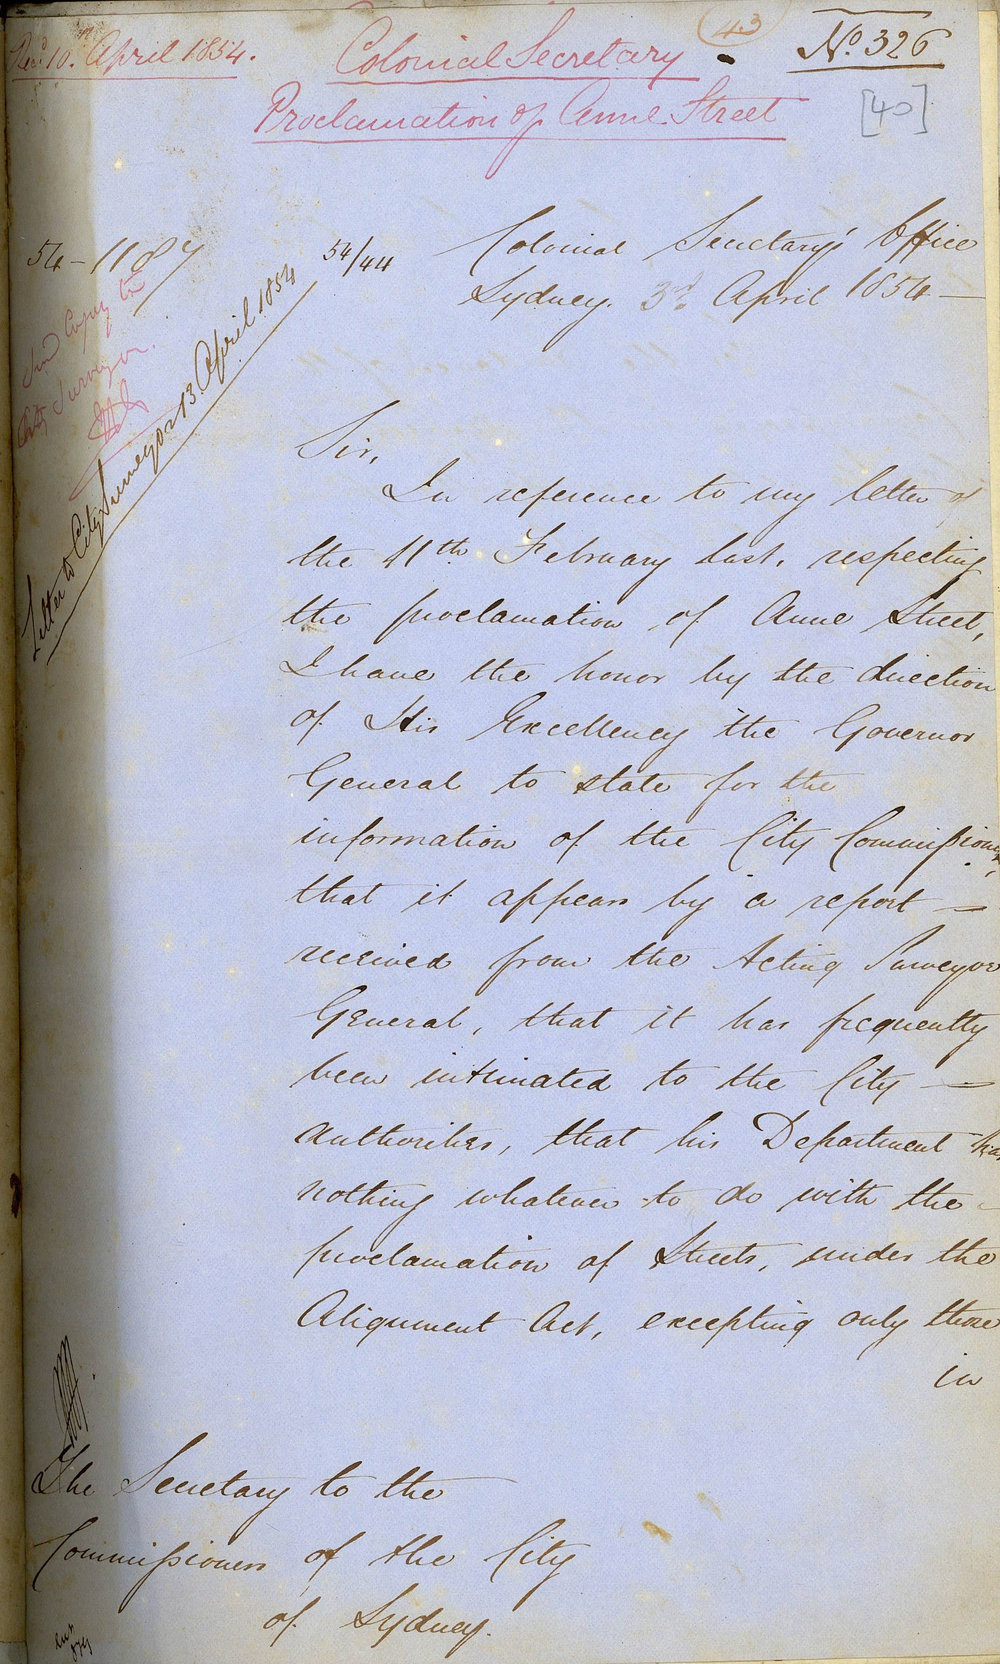 Recd. 10th. April 1854.
43
No. 326
Colonial Secretary
Proclamation of Anne Street
[40]
54-1187
54/44
Colonial Secretary's Office
Sydney. 3rd April 1854 —
Send Copy to
City Surveyor.
Letter to City Surveyor 13. April 1854
Sir,
In reference to my letter of
the 11th. February last, respecting
the proclamation of Anne Street,
I have the honor by the direction
of His Excellency the Governor
General to state for the
information of the City Commissioners,
that it appears by a report —
received from the Acting Surveyor
General, that it has frequently
been intimated to the City —
authorities, that his Department has
nothing whatever to do with the —
proclamation of Streets, under the
Alignment Act, excepting only those
in
The Secretary to the
Commissioners of the City
of Sydney.